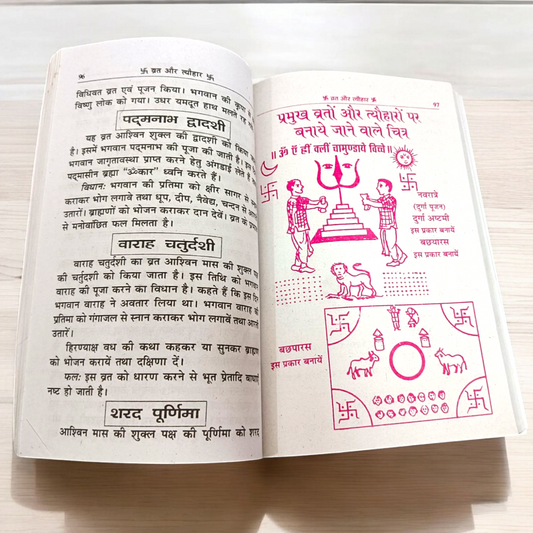 ९६
卐 व्रत और त्यौहार 卐
विधिवत व्रत एवं पूजन किया। भगवान की कृपा
विष्णु लोक को गया। उधर यमदूत हाथ मलते रह
पद्मनाभ द्वादशी
यह व्रत आश्विन शुक्ल की द्वादशी को किया
है। इसमें भगवान पद्मनाभ की पूजा की जाती है। इस
भगवान जागृतावस्था प्राप्त करने हेतु अंगडाई लेते है
पद्मासीन ब्रह्मा "ॐकार" ध्वनि करते हैं।
विधान: भगवान की प्रतिमा को क्षीर सागर से
कराकर भोग लगावे तथा धूप, दीप, नैवेद्य, चन्दन से आ
उतारों। ब्राह्मणों को भोजन कराकर दान देवें। व्रत के
से मनोवांछित फल मिलता है।
वाराह चतुर्दशी
वाराह चतुर्दशी का व्रत आश्विन मास की शुक्ल
की चर्तुदशी को किया जाता है। इस तिथि को भगवा
वाराह की पूजा करने का विधान है। कहते हैं कि इस दि
भगवान वाराह ने अवतार लिया था। भगवान वाराह की
प्रतिमा को गंगाजल से स्नान कराकर भोग लगायें तथा आ
उतारें।
हिरण्याक्ष वध की कथा कहकर या सुनकर ब्राह्म
को भोजन करायें तथा दक्षिणा दें।
फल: इस व्रत को धारण करने से भूत प्रेतादि बाधा
नष्ट हो जाती है।
शरद पूर्णिमा
आश्विन मास की शुक्ल पक्ष की पूर्णिमा को शरद
卐 व्रत और त्यौहार 卐
९७
प्रमुख व्रतों और त्यौहारों पर
बनाये जाने वाले चित्र
॥ ॐ ऐं ह्रीं क्लीं चामुण्डाये विच्चे ॥
नवरात्रे
(दुर्गा पूजन)
दुर्गा अष्टमी
इस प्रकार बनायें
बछपारस
इस प्रकार बनायें
बछपारस
इस प्रकार बनायें